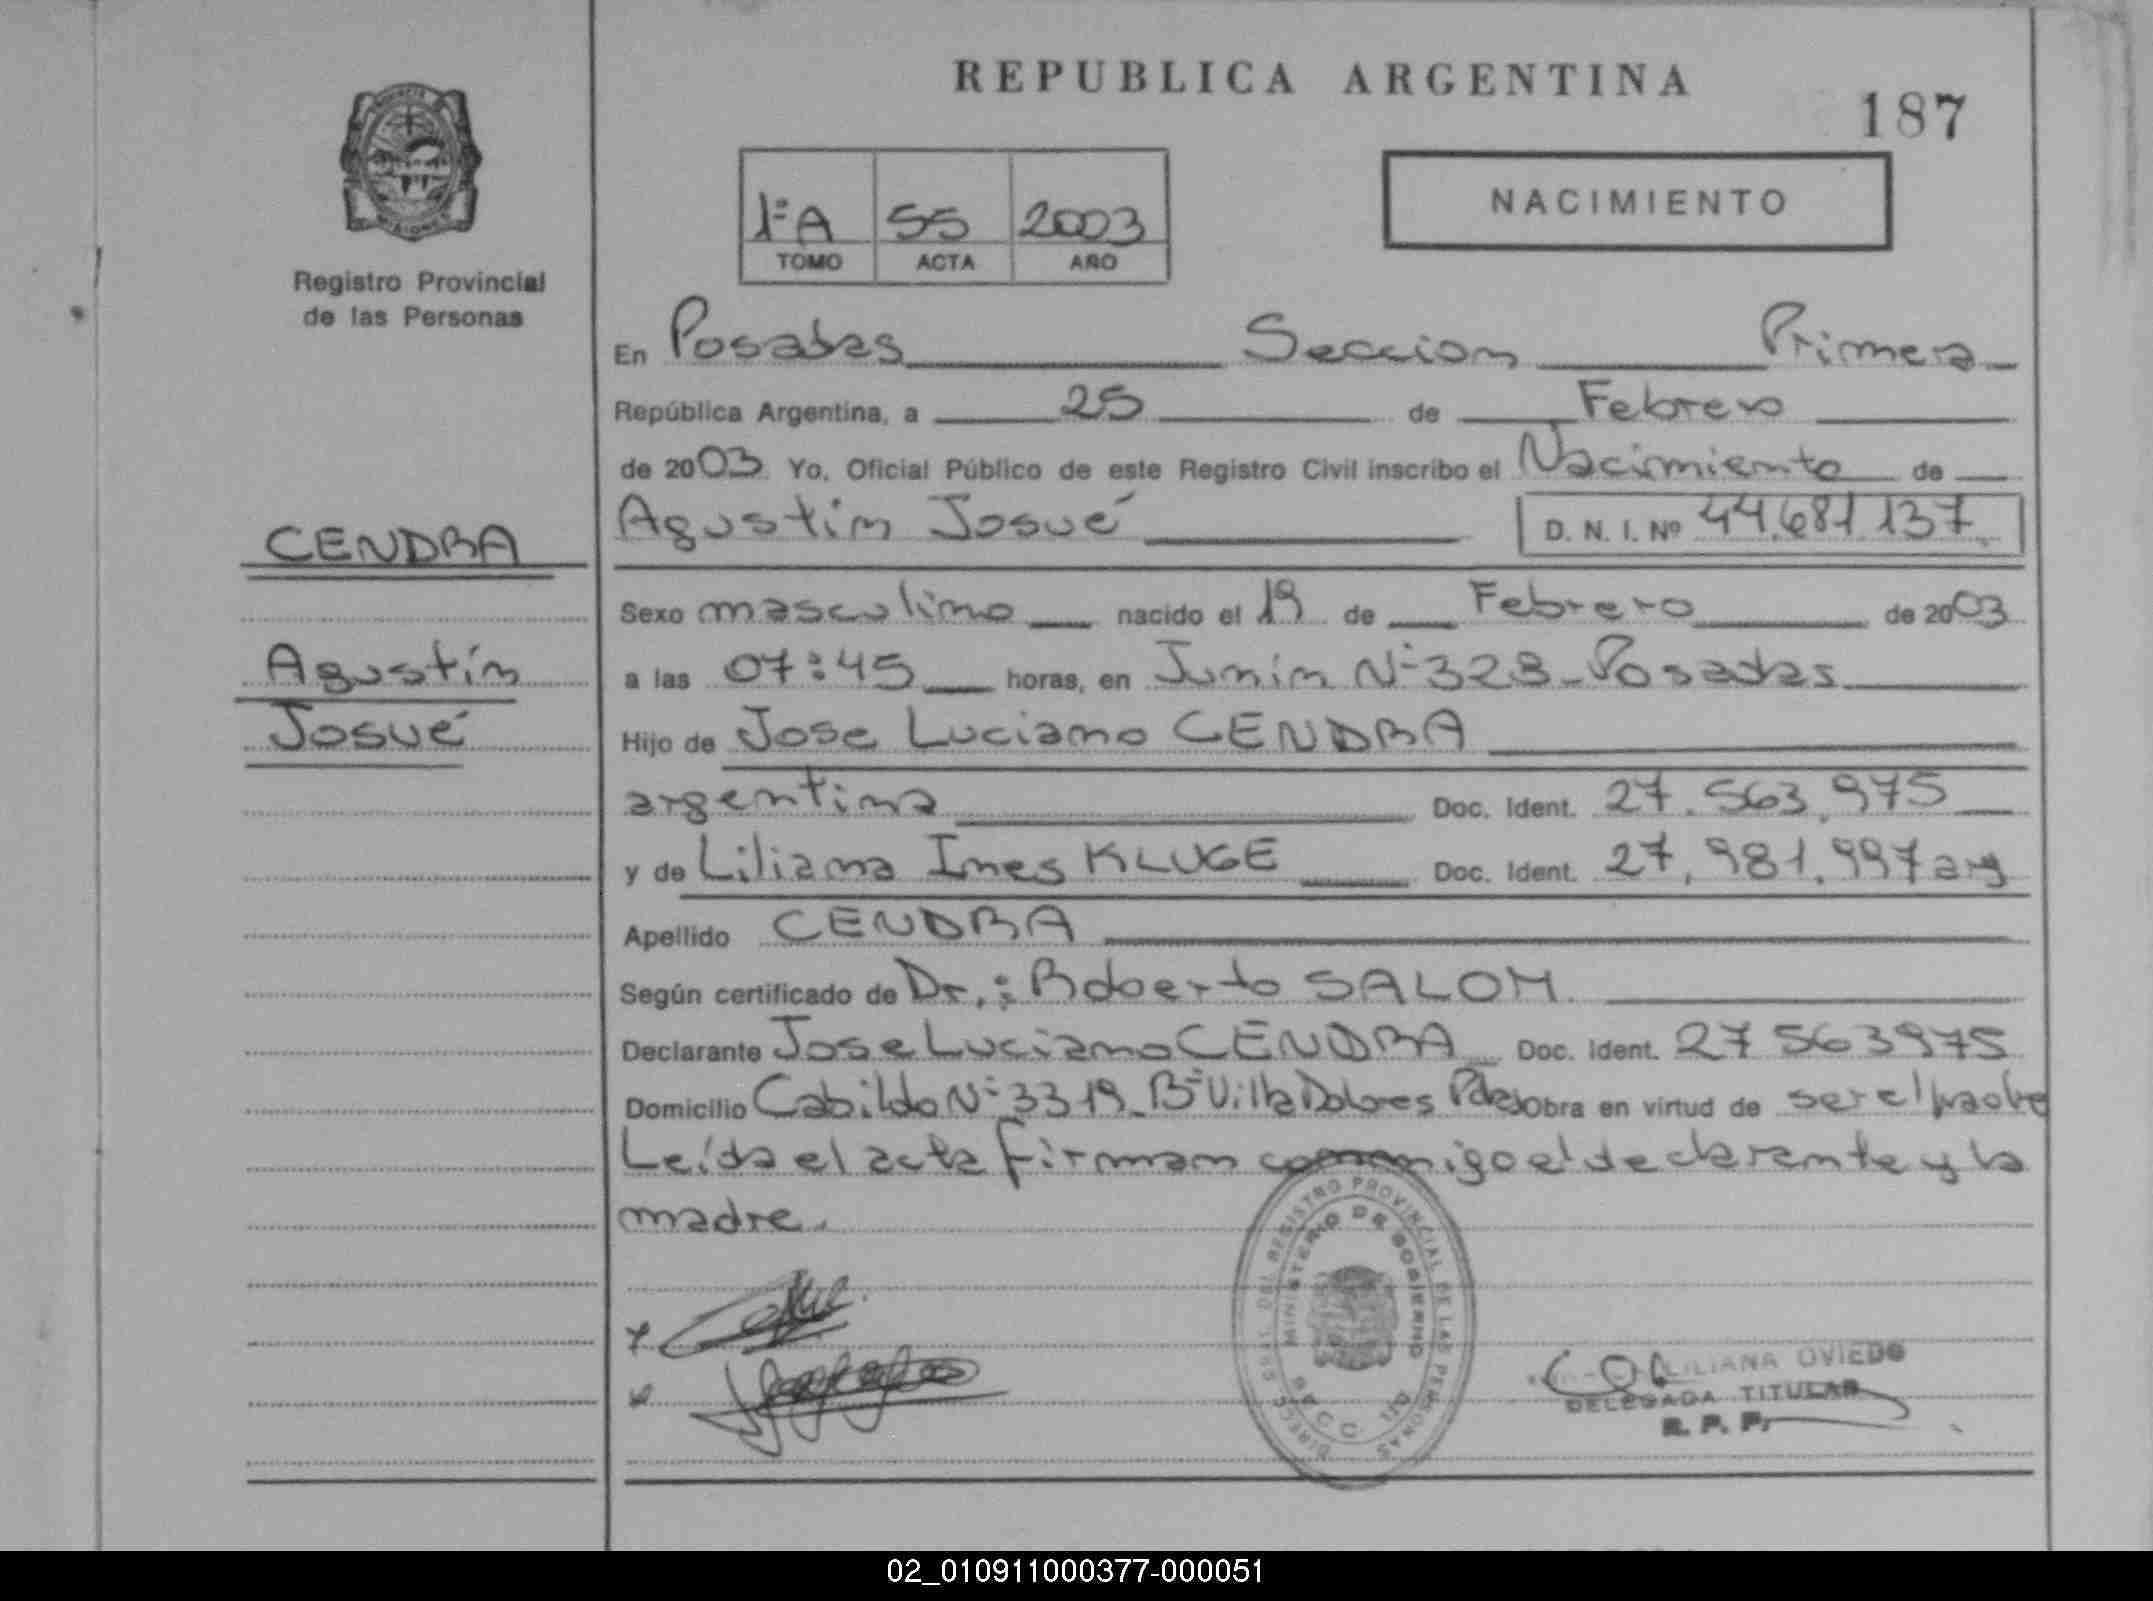 REPUBLICA ARGENTINA
187
1ªA 55 2003
TOMO ACTA AÑO
NACIMIENTO
Registro Provincial
de las Personas
CENDRA
Agustín
Josué
En Posadas Seccion Primera
República Argentina, a 25 de Febrero
de 2003 Yo, Oficial Público de este Registro Civil inscribo el Nacimiento de
Agustín Josué D. N. I. Nº 44.681.137
Sexo masculino nacido el 19 de Febrero de 2003
a las 07:45 horas, en Junín Nº 328 - Posadas
Hijo de Jose Luciano CENDRA
argentina Doc. Ident. 27.563.975
y de Liliana Ines KLUGE Doc. Ident. 27.981.997 arg
Apellido CENDRA
Según certificado de Dr.: Roberto SALOM
Declarante Jose Luciano CENDRA Doc. Ident. 27563975
Domicilio Cabildo Nº 3319 - Bº Villa Dolores Pdas Obra en virtud de ser el padre
Leída el acta firman conmigo el declarante y la
madre.
DIRECC. GRAL. DEL REGISTRO PROVINCIAL DE LAS PERSONAS
MINISTERIO DE GOBIERNO
LILIANA OVIEDO
DELEGADA TITULAR
R. P. P.
02_010911000377-000051